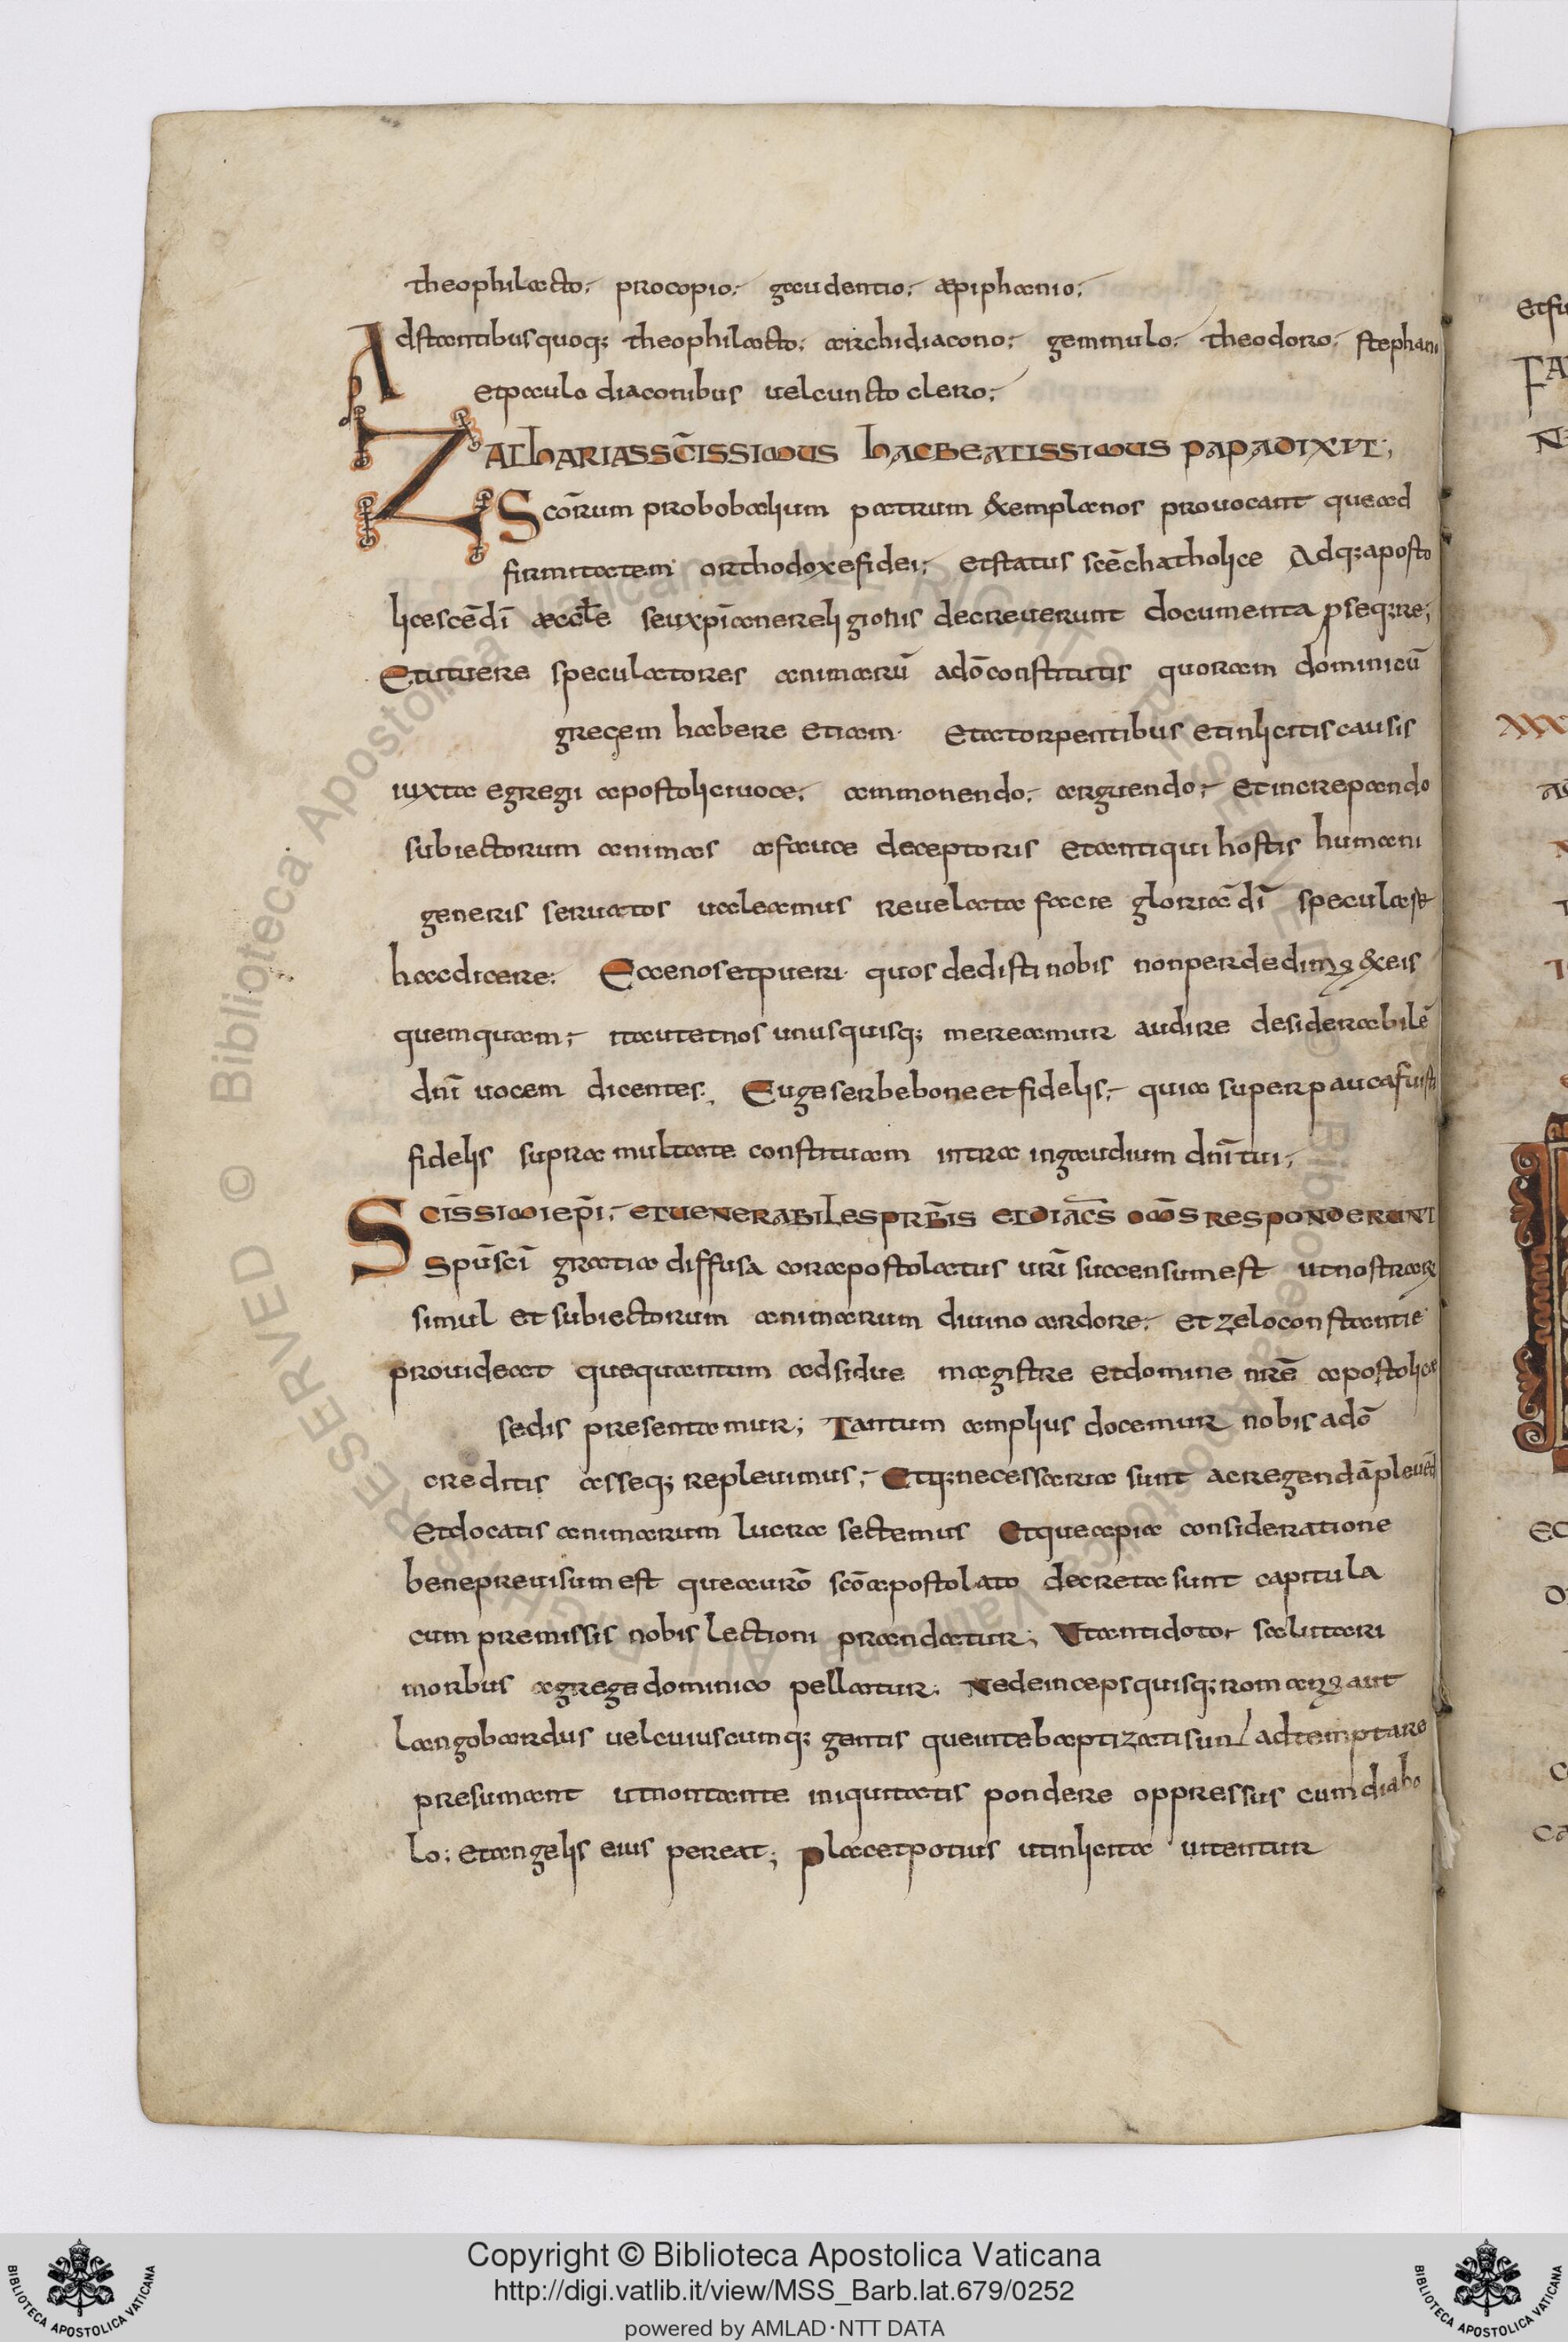 theophilacto; procopio; gaudentio; æpiphanio;
Adstantibus quoq; theophilacto; archidiacono; gemmulo; theodoro; stephano
et paculo diaconibus uel cuncto clero;
ZAChARIAS SC̄ISSIMUS hAC BEATISSIMUS PAPA DIXIT;
Scōrum probobalium patrum &empla nos prouocant que ad
firmitatem orthodoxe fidei; et status scē chatholice Adq; aposto
lice scē dī æccłe seu xpīane religionis decreuerunt documenta pseq;re;
Etutuere speculatores animarū adō constitutis quoram dominicū
gregem habere etiam. et a torpentibus et inlicitis causis
iuxta egregii apostolici uoce; ammonendo; arguendo; et increpando
subiectorum animas a fauce deceptoris et antiqui hostis humani
generis seruatos ualeamus reuelata facie gloriā dī speculaꝛ&
hac dicere: Ecce nos et pueri quos dedisti nobis non perdedimus &eis
quemquam; ita ut et nos unusquisq; mereamur audire desiderabilē
dnī uocem dicentes; Euge serbe bone et fidelis; quia super pauca fuisti
fidelis supra multa te constituam intra in gaudium dnī tui;
SCĪSSIMI EPĪ; ET UENERABILES PRB̄IS ET DIAC̄S OMS̄ RESPONDERUNT
Spūscī gratia diffusa cor apostolatus urī succensum est ut nostrarum
simul et subiectorum animarum diuino ardore; et zelo constantie
prouideat que quantum adsidue magistre et domine nrē apostolice
sedis presentamur; Tantum amplius docemur nobis adō
creditis asseq; repleuimus; Et q; necessaria sunt ac regendā pleuē
et docatis animarum lucra sectemus Et que a pia consideratione
bene preuisum est que a urō scō apostolato decreta sunt capitula
cum premissis nobis lectioni prandatur; Ut antidoto salutari
morbus a grege dominico pellatur; Ne deinceps quisq; romanus aut
langobardus uel cuiuscumq; gentis que inte baptizati sunt adtemptare
presumant ut non tante iniquitatis pondere oppressus cum diabo
lo; et angelis eius pereat; Placet potius ut inlicita uitentur
Copyright © Biblioteca Apostolica Vaticana
http://digi.vatlib.it/view/MSS_Barb.lat.679/0252
powered by AMLAD·NTT DATA